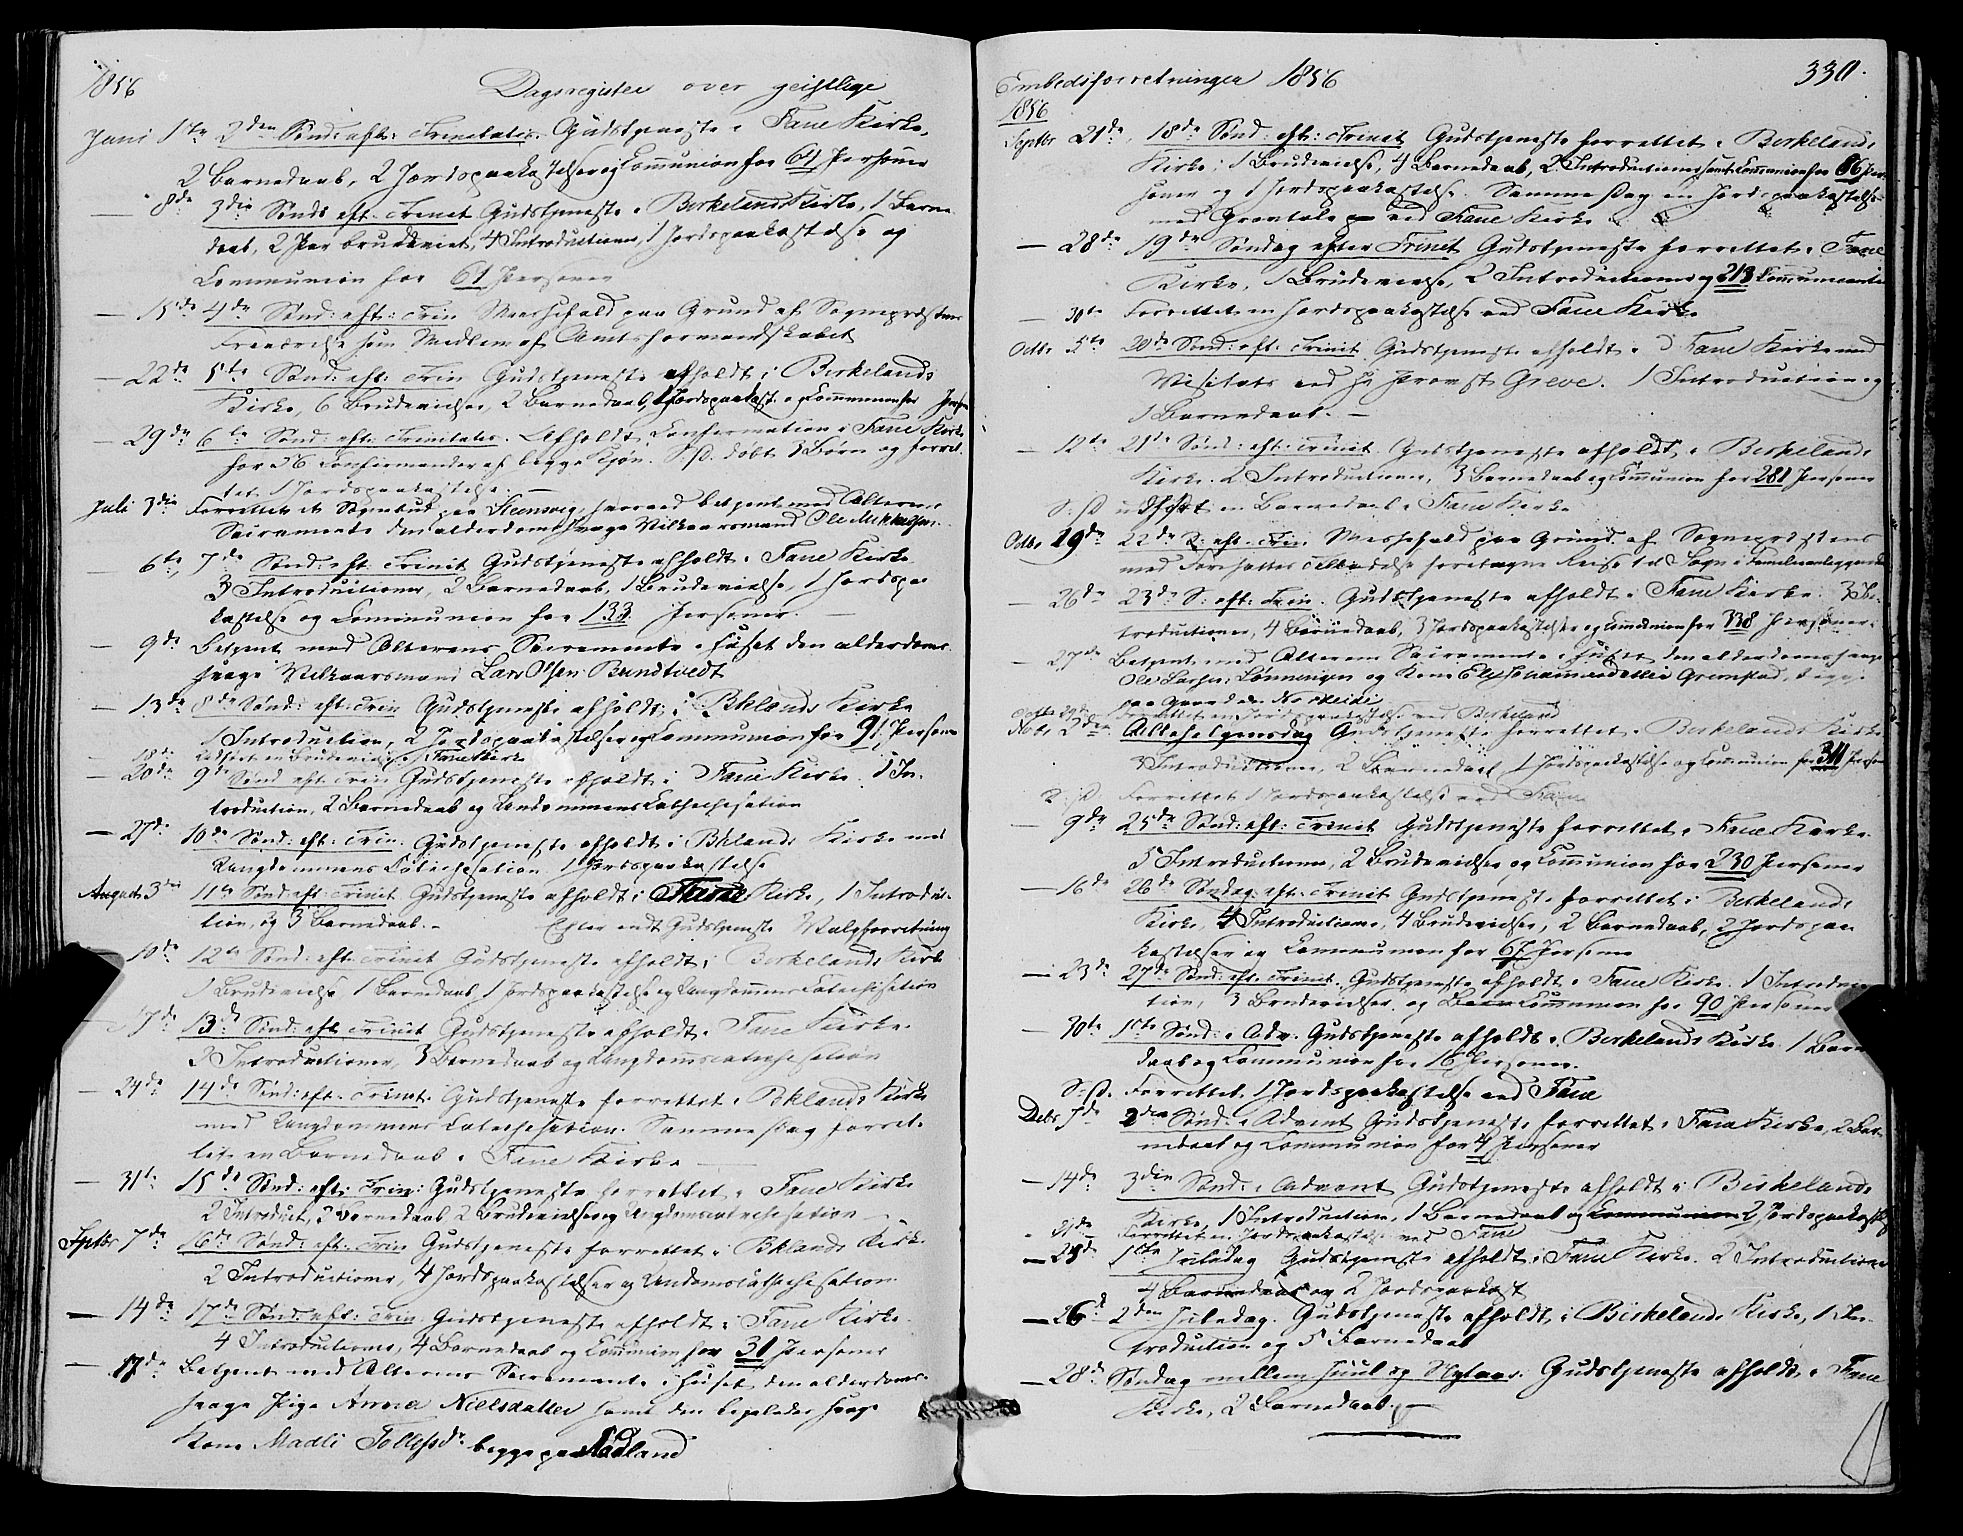 1856 Dagsregister over geistlige
Juni 1ste 2den Sønd: eft: Trinitatis. Gudstjeneste i Fane Kirke,
2 Barnedaab, 2 Jordspaakastelser og Communion for 64 Personer
— 8de 3die Sønd: eft. Trinit Gudstjeneste i Birkelands Kirke, 1 Barne
daab, 2 Par brudeviet, 4 Introductioner, 1 Jordspaakastelse og
Communion for 61 Personer
— 15de 4de Sønd: eft: Trin Messefald paa Grund af Sognepræstens
Fraværelse som Medlem af Amtsformandskabet
— 22de 5te Sønd: eft: Trin Gudstjeneste afholdt i Birkelands
Kirke, 6 Brudevielser, 2 Barnedaab, Jordspaakast. og Communion for
— 29de 6te Sønd: eft: Trinitatis. Afholdt Confirmation i Fane Kirke
for 56 Confirmander af begge Kjøn. S. D. døbt 3 Børn og forret-
tet 1 Jordspaakastelse. —
Juli 3die Forrettet et Sognebud paa hvorved betjent med Alterens
Sacramente den alderdomssvage Vilkaarsmand Ole
— 6te 7de Sønd: eft. Trinit Gudstjeneste afholdt i Fane Kirke
3 Introductioner, 2 Barnedaab, 1 Brudevielse, 1 Jordspaa
kastelse og Communion for 133 Personer. —
— 9de Betjent med Alterens Sacramente i Huset den alderdoms-
svage Vilkaarsmand Lars Olsen Bundtvedt
— 13de 8de Sønd: eft: Trin Gudstjeneste afholdt i Bklands Kirke
1 Introduction, 2 Jordspaakastelser og Communion for 91 Personer
— 18de en Brudevielse i Fane Kirke
— 20de 9de Sønd eft. Trin Gudstjeneste afholdt i Fane Kirke. 1 In-
troduction, 2 Barnedaab og Ungdommens Catechisation
— 27de 10de Sønd: eft: Trin. Gudstjeneste afholdt i Bklands Kirke med
Ungdommens Catechisation 1 Jordspaakastelse
August 3die 11te Sønd eft: Trinit Gudstjeneste afholdt i Fane Kirke, 1 Introduc-
tion, og 3 Barnedaab. - Efter endt Gudstjeneste Valgforretning
10de 12te Sønd: eft: Trinit Gudstjeneste afholdt i Birkelands Kirke
1 Brudevielse, 1 Barnedaab, 1 Jordspaakastelse og Ungdommens Catechisation
17de 13de Sønd: eft Trinit Gudstjeneste afholdt i Fane Kirke.
3 Introductioner, 3 Barnedaab og Ungdomscatechisation
— 24de 14de Sønd: eft. Trinit. Gudstjeneste forrettet i Bklands Kirke
med Ungdommens Catechisation. Samme Dag forret-
tet en Barnedaab i Fane Kirke
— 31te 15de Sønd: eft: Trin: Gudstjeneste forrettet i Fane Kirke
2 Introduct, 3 Barnedaab 2 Brudevielser og Ungdomscatechisation
Septbr 7de 16de Sønd: eft: Trin Gudstjeneste forrettet i Bklands Kirke.
2 Introductioner, 4 Jordspaakastelser og Ungdomscatechisation
— 14de 17de Sønd: eft: Trin Gudstjeneste afholdt i Fane Kirke.
4 Introductioner, 4 Barnedaab og Communion for 31 Personer
— 17de Betjent med Alterens Sacramente i Huset den alderdoms-
svage Pige Anna Nielsdatter samt den svage
Kone Madli Tollefsdr begge paa Nødland
Embedsforretninger 1856 330.
1856
Septbr 21de 18de Sønd: eft: Trinit Gudstjeneste forrettet i Birkelands
Kirke; 1 Brudevielse, 4 Barnedaab, 2 Introductioner samt Communion for 66 Per-
soner og 1 Jordspaakastelse. Samme Dag en Jordspaakastelse
med Gravtale ved Fane Kirke
— 28de 19de Søndag efter Trinit Gudstjeneste forrettet i Fane
Kirke, 1 Brudevielse, 2 Introductioner og 213 Communicanter
— 30te Forrettet en Jordspaakastelse ved Fane Kirke
Octbr 5te 20de Sønd: eft: Trinit Gudstjeneste afholdt i Fane Kirke med
Visitats ved Hr Provst Greve. 1 Introduction og
1 Barnedaab. —
— 12te 21de Sønd: eft: Trinit Gudstjeneste afholdt i Birkelands
Kirke. 2 Introductioner, 3 Barnedaab og Communion for 281 Personer
S: D en Barnedaab i Fane Kirke
Octbr 19de 22de S: eft: Trin. Messefald paa Grund af Sognepræstens
med Foresattes Tilladelse foretagne Reise til Sogn i Familieanliggender
— 26de 23de S: eft: Trin. Gudstjeneste afholdt i Fane Kirke. 3 In-
troductioner, 4 Barnedaab, 3 Jordspaakastelser og Communion for 338 Personer.
— 27de Betjent med Alterens Sacramente i Huset den alderdomssvage
Ole Larsen Lønningen og Kone Elsj Johannesdatter Grimstad, begge
paa Gaarden
Octbr 29de Forrettet en Jordspaakastelse ved Birkeland
Novbr 2den Allehelgensdag Gudstjeneste forrettet i Birkelands Kirke
3 Introductioner, 2 Barnedaab 1 Jordspaakastelse og Communion for 311 Personer
S: D Forrettet 1 Jordspaakastelse ved Fane
— 9de 25de Sønd: eft: Trinit Gudstjeneste forrettet i Fane Kirke.
5 Introductioner, 2 Brudevielser og Communion for 230 Personer
— 16de 26de Søndag eft: Trinit Gudstjeneste forrettet i Birkelands
Kirke, 4 Introductioner, 4 Brudevielser, 2 Barnedaab, 2 Jordspaa
kastelser og Communion for 67 Personer
— 23de 27de Sønd: eft. Trinit. Gudstjeneste afholdt i Fane Kirke. 1 Introduc-
tion, 3 Brudevielser og Communion for 90 Personer
— 30te 1ste Sønd: i Adv. Gudstjeneste afholdt i Birkelands Kirke 1 Barne
daab og Communion for 16 Personer.
S: D. Forrettet 1 Jordspaakastelse ved Fane
Debr 7de 2den Sønd: i Advent Gudstjeneste forrettet i Fane Kirke, 2 Bar-
nedaab og Communion for 4 Personer
— 14de 3die Sønd: i Advent Gudstjeneste afholdt i Birkelands
Kirke, 1 Introduction, 1 Barnedaab og Communion 2 Jordspaakastelser
21de Forrettet en Jordspaakastelse ved Fane
— 25de 1ste Juledag Gudstjeneste afholdt i Fane Kirke. 2 Introductioner
4 Barnedaab og 2 Jordspaakast
— 26d 2den Juledag. Gudstjeneste afholdt i Birkelands Kirke, 1 In-
troduction og 5 Barnedaab
— 28de Søndag mellem Juul og Nytaar. Gudstjeneste afholdt i Fane
Kirke, 2 Barnedaab. —